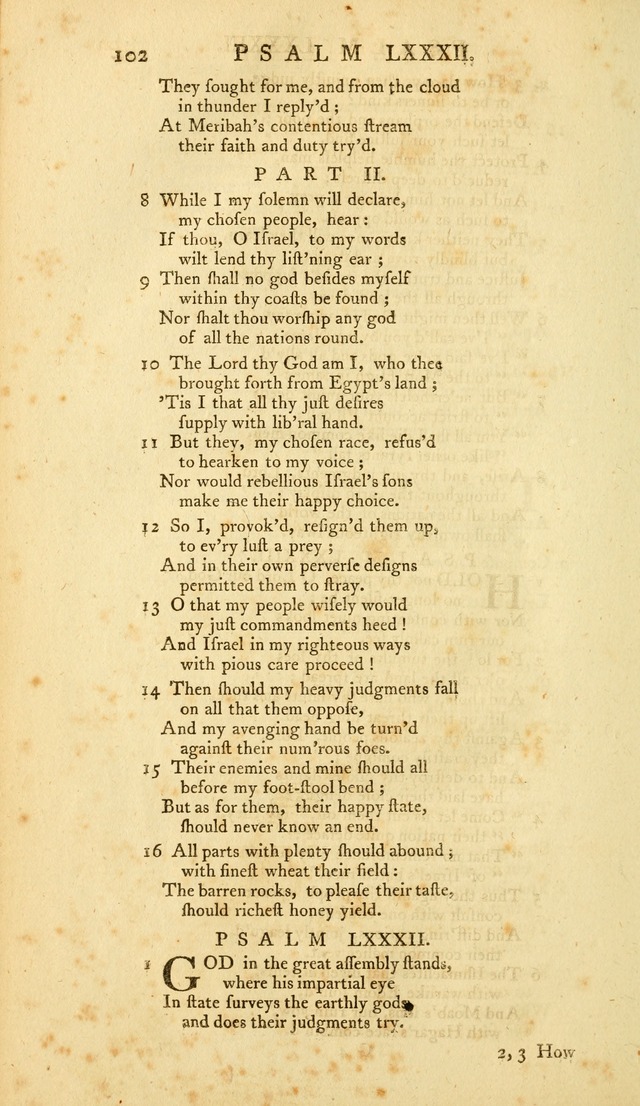 102 PSALM LXXXII.
They ſought for me, and from the cloud
in thunder I reply'd ;
At Meribah's contentious ſtream
their faith and duty try'd.
PART II.
8 While I my ſolemn will declare,
my choſen people, hear :
If thou, O Iſrael, to my words
wilt lend thy liſt'ning ear ;
9 Then ſhall no god beſides myſelf
within thy coaſts be found ;
Nor ſhalt thou worſhip any god
of all the nations round.
10 The Lord thy God am I, who thee
brought forth from Egypt's land ;
'Tis I that all thy juſt deſires
ſupply with lib'ral hand.
11 But they, my choſen race, refus'd
to hearken to my voice ;
Nor would rebellious Iſrael's ſons
make me their happy choice.
12 So I, provok'd, reſign'd them up,
to ev'ry luſt a prey ;
And in their own perverſe deſigns
permitted them to ſtray.
13 O that my people wiſely would
my juſt commandments heed !
And Iſrael in my righteous ways
with pious care proceed !
14 Then ſhould my heavy judgments fall
on all that them oppoſe,
And my avenging hand be turn'd
againſt their num'rous foes.
15 Their enemies and mine ſhould all
before my foot-ſtool bend ;
But as for them, their happy ſtate,
ſhould never know an end.
16 All parts with plenty ſhould abound ;
with fineſt wheat their field :
The barren rocks, to pleaſe their taſte,
ſhould richeſt honey yield.
PSALM LXXXII.
1 GOD in the great aſſembly ſtands,
where his impartial eye
In ſtate ſurveys the earthly gods,
and does their judgments try.
2, 3 How